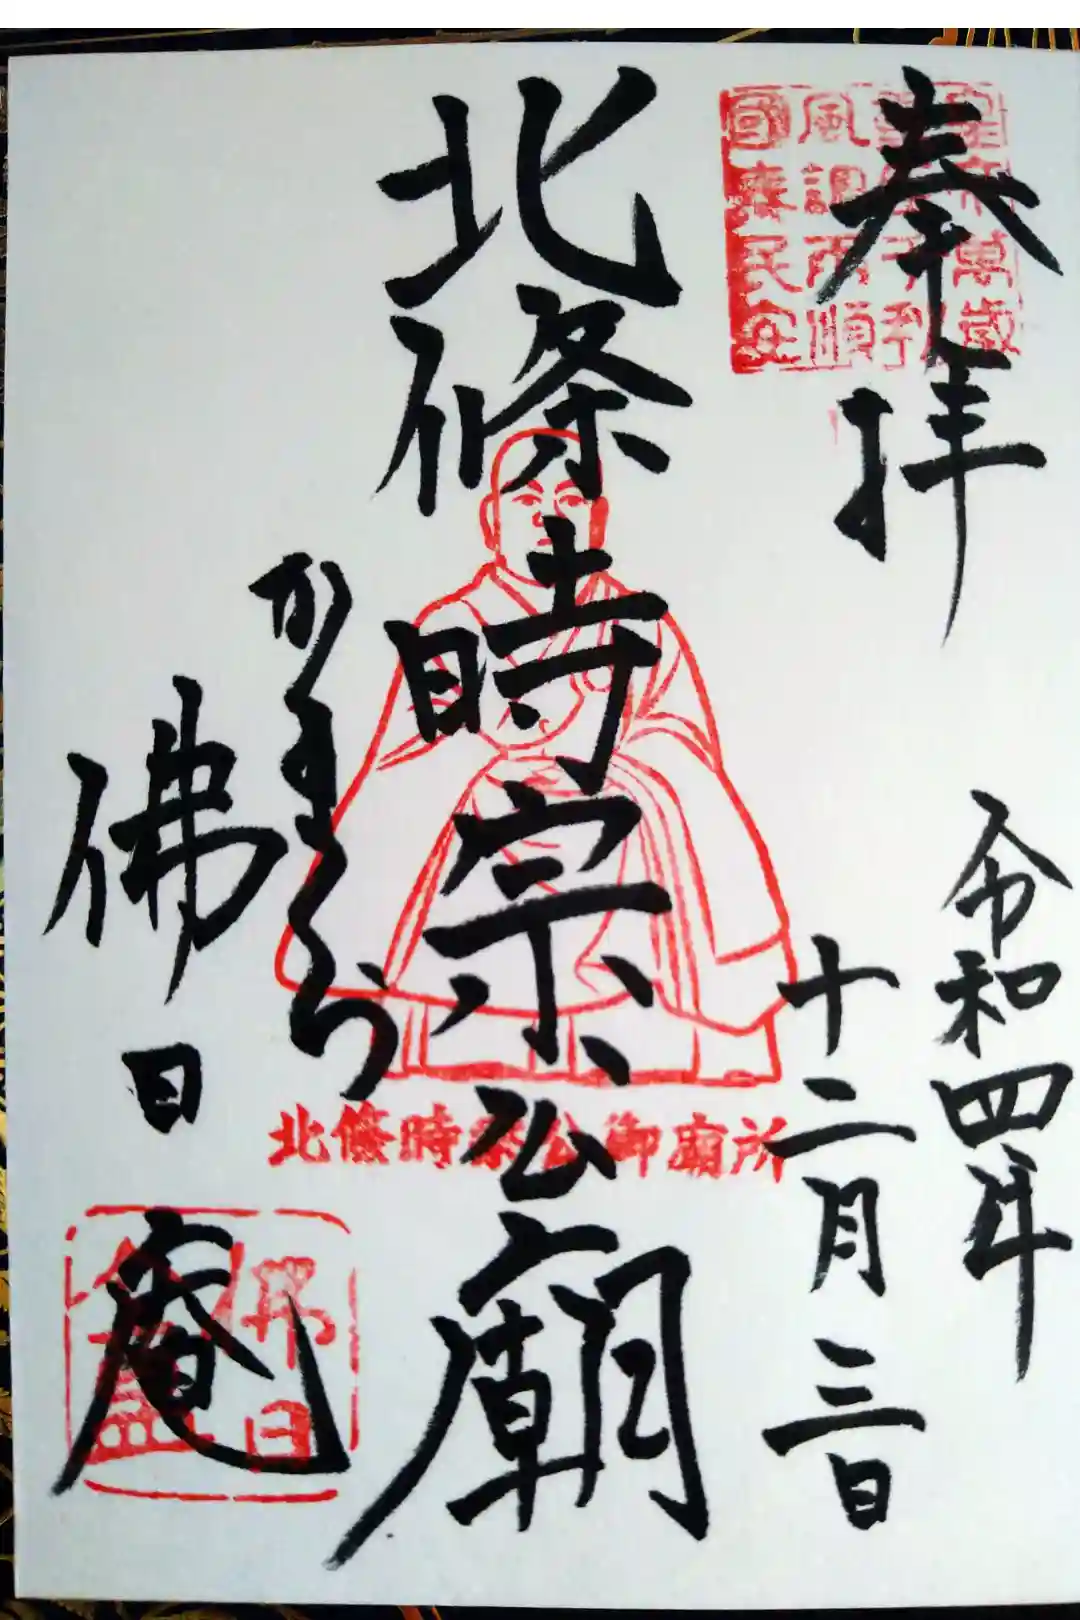 奉拝
令和四年
十二月三日
北條時宗公廟
かまくら
佛日庵
風調雨順
國泰民安
北條時宗公御廟所
佛日